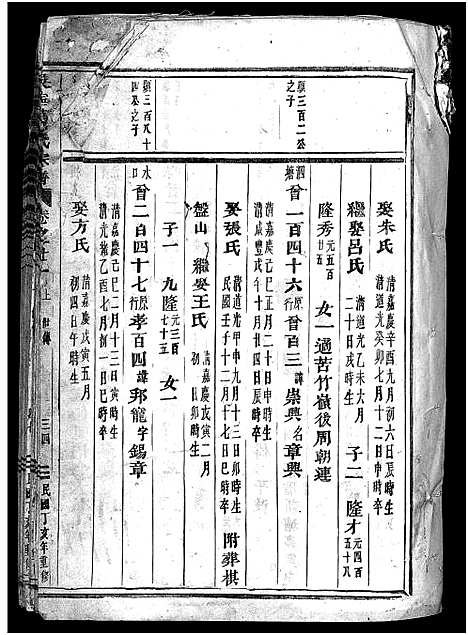 娶朱氏 清嘉慶辛酉九月初六日辰時生
清道光癸卯七月十二日申時卒
繼娶呂氏 清道光乙未六月
二十日戌時生 子二 隆才 元四百
五十八
隆秀 元五百
廿五 女一適苦竹嶺後周朝連
泗
塘 酋一百四十六 原
行 酋百三 諱 崇興 名 章興
清嘉慶己巳正月二十日申時生
清咸豐戊午十月廿四日辰時卒
娶張氏 清道光甲申九月十三日卯時生
民國壬子十二月十七日巳時卒 附葬棋
盤山 繼娶王氏 清嘉慶戊寅二月
初一日卯時生
子一 九隆 元三百
七十五 女一
水
口 酋二百四十七 原
行 孝百四 諱 邦龍 字 錫章
清嘉慶己巳二月十三日寅時生
清光緒乙酉七月初一日巳時卒
娶方氏 清嘉慶戊寅五月
初四日午時生
顯三百二公
之子
顯三百八十
四公之子
卷之廿一上
三四
民國丁亥年重修